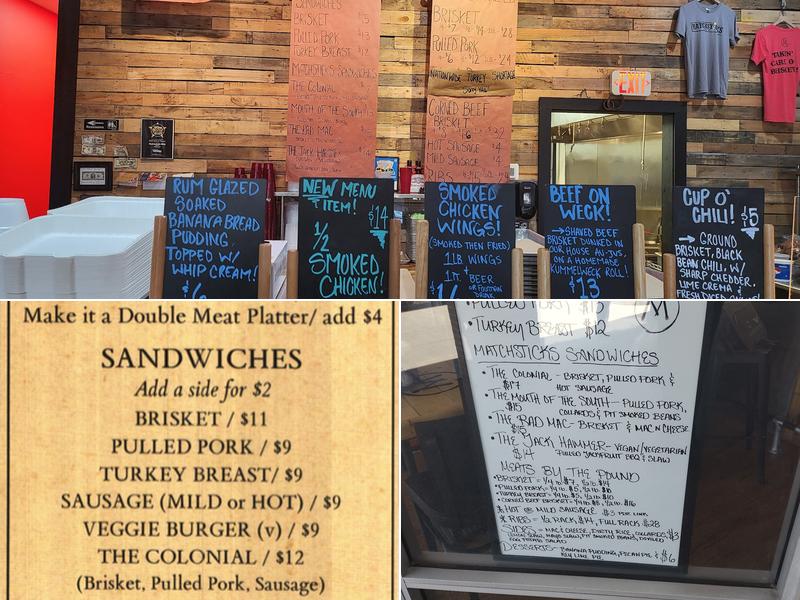 SANDWICHES
BRISKET
PULLED PORK
TURKEY BREAST
MATCHSTICKS SANDWICHES
THE COLONIAL
MOUTH OF THE SOUTH
THE RAD MAC
THE JACK HAMMER
BRISKET
PULLED PORK
NATIONWIDE TURKEY SHORTAGE
CORNED BEEF
BRISKET
HOT SAUSAGE
MILD SAUSAGE
RIBS
EXIT
RUM GLAZED
SOAKED
BANANA BREAD
PUDDING,
TOPPED W/
WHIP CREAM!
NEW MENU
ITEM!
$14
1/2
SMOKED
CHICKEN!
SMOKED
CHICKEN
WINGS!
(SMOKED THEN FRIED)
1LB WINGS
1 PT. BEER
OR FOUNTAIN
DRINK
BEEF ON
WECK!
→SHAVED BEEF
BRISKET DUNKED IN
OUR HOUSE AU-JUS,
ON A HOMEMADE
KUMMELWECK ROLL!
$13
CUP O'
CHILI! $5
→ GROUND
BRISKET, BLACK
BEAN CHILI, W/
SHARP CHEDDER,
LIME CREMA &
Make it a Double Meat Platter/ add $4
SANDWICHES
Add a side for $2
BRISKET / $11
PULLED PORK / $9
TURKEY BREAST/ $9
SAUSAGE (MILD or HOT) / $9
VEGGIE BURGER (v) / $9
THE COLONIAL / $12
(Brisket, Pulled Pork, Sausage)
• PULLED PORK $13
• TURKEY BREAST $12
M
MATCHSTICKS SANDWICHES
• THE COLONIAL - BRISKET, PULLED PORK &
$17 HOT SAUSAGE
• THE MOUTH OF THE SOUTH - PULLED PORK,
$15 COLLARDS & PIT SMOKED BEANS
• THE RAD MAC - BRISKET & MAC N CHEESE
$15
• THE JACK HAMMER - VEGAN/VEGETARIAN
$14 PULLED JACKFRUIT BBQ & SLAW
MEATS BY THE POUND
• BRISKET - 1/4 lb. $7, 1/2 lb. $14
• PULLED PORK - 1/4 lb. $5, 1/2 lb. $10
• TURKEY BREAST - 1/4 lb. $5, 1/2 lb. $10
• CORNED BEEF BRISKET - 1/4 lb. $8, 1/2 lb. $16
* HOT OR MILD SAUSAGE $3 PER LINK
* RIBS - 1/2 RACK, $14, FULL RACK $28
SIDES - MAC & CHEESE, DIRTY RICE, COLLARDS, $3
LEMON SLAW, MAYO SLAW, PIT SMOKED BEANS, DEVILED
EGG POTATO SALAD
DESSERTS - BANANA PUDDING, PECAN PIE & $6
KEY LIME PIE